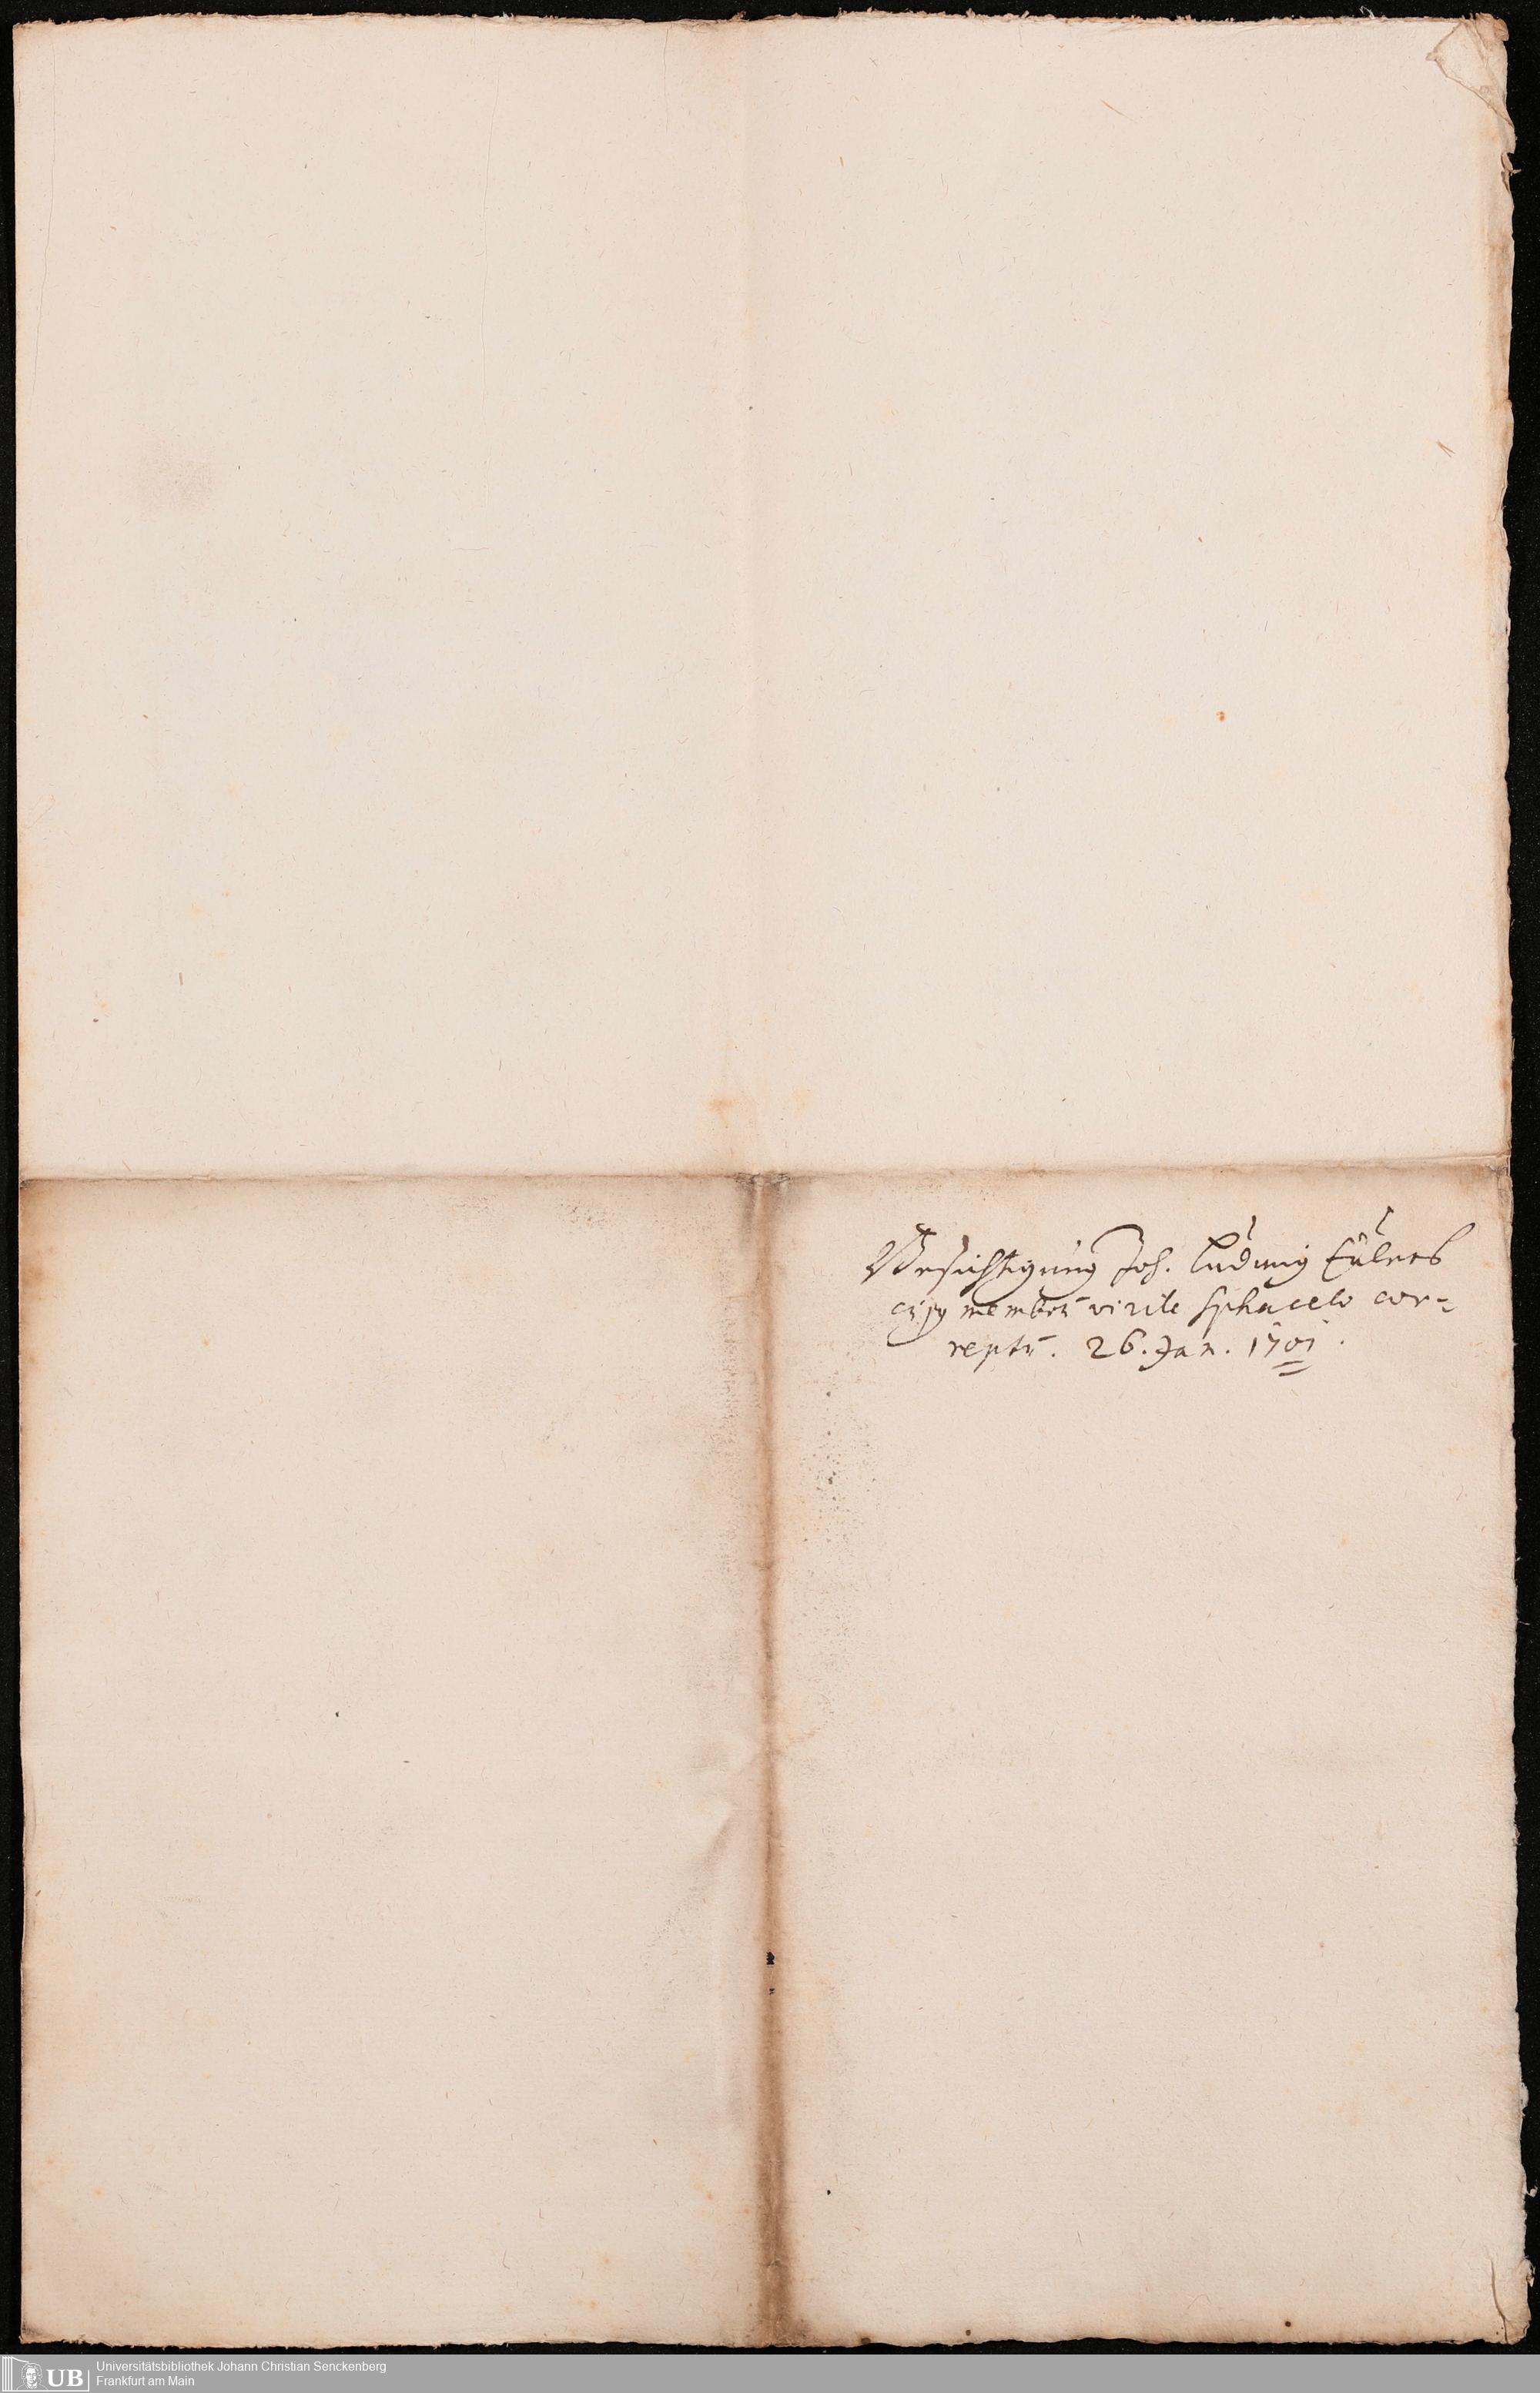 Besichtigung Joh. Ludwig Eulers
cujꝰ membrū virile sphacelo cor=
reptū. 26. Jan. 1701.
UB
Universitätsbibliothek Johann Christian Senckenberg
Frankfurt am Main